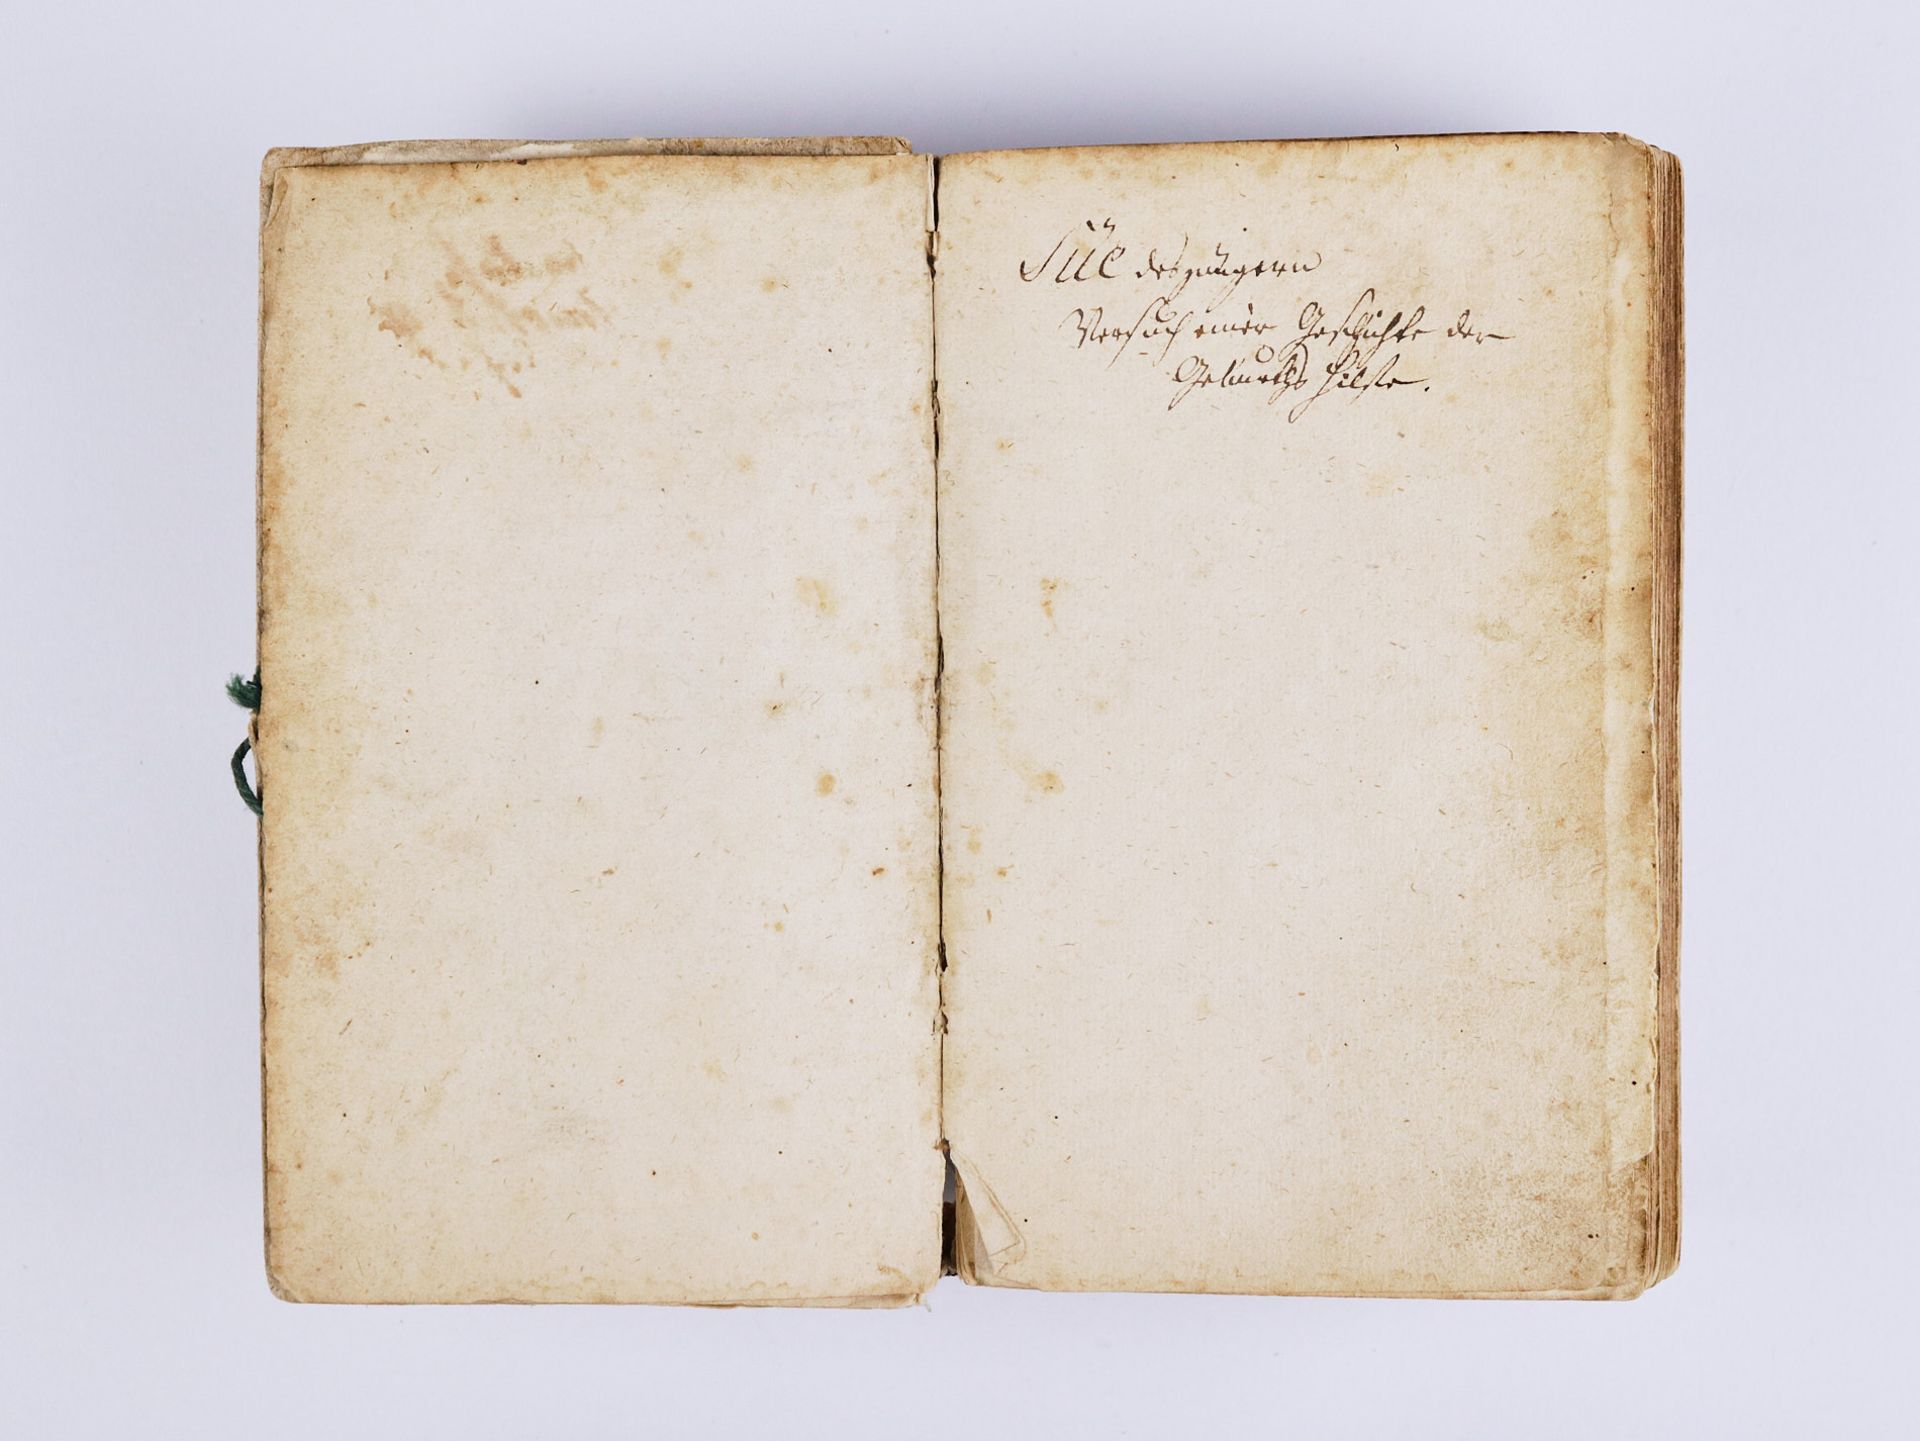 Süe des jüngern
Versuch einer Geschichte der
Geburths Hilfe.